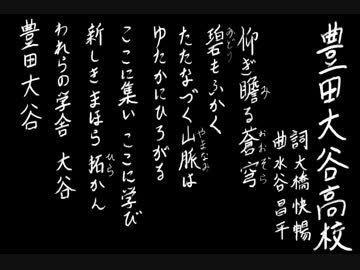 豊田大谷高校
詞 大橋快暢
曲 水谷昌平
仰ぎ瞻る蒼穹
碧もふかく
たたなづく山脈は
ゆたかにひろがる
ここに集い ここに学び
新しきまほら拓かん
われらの学舎 大谷
豊田大谷